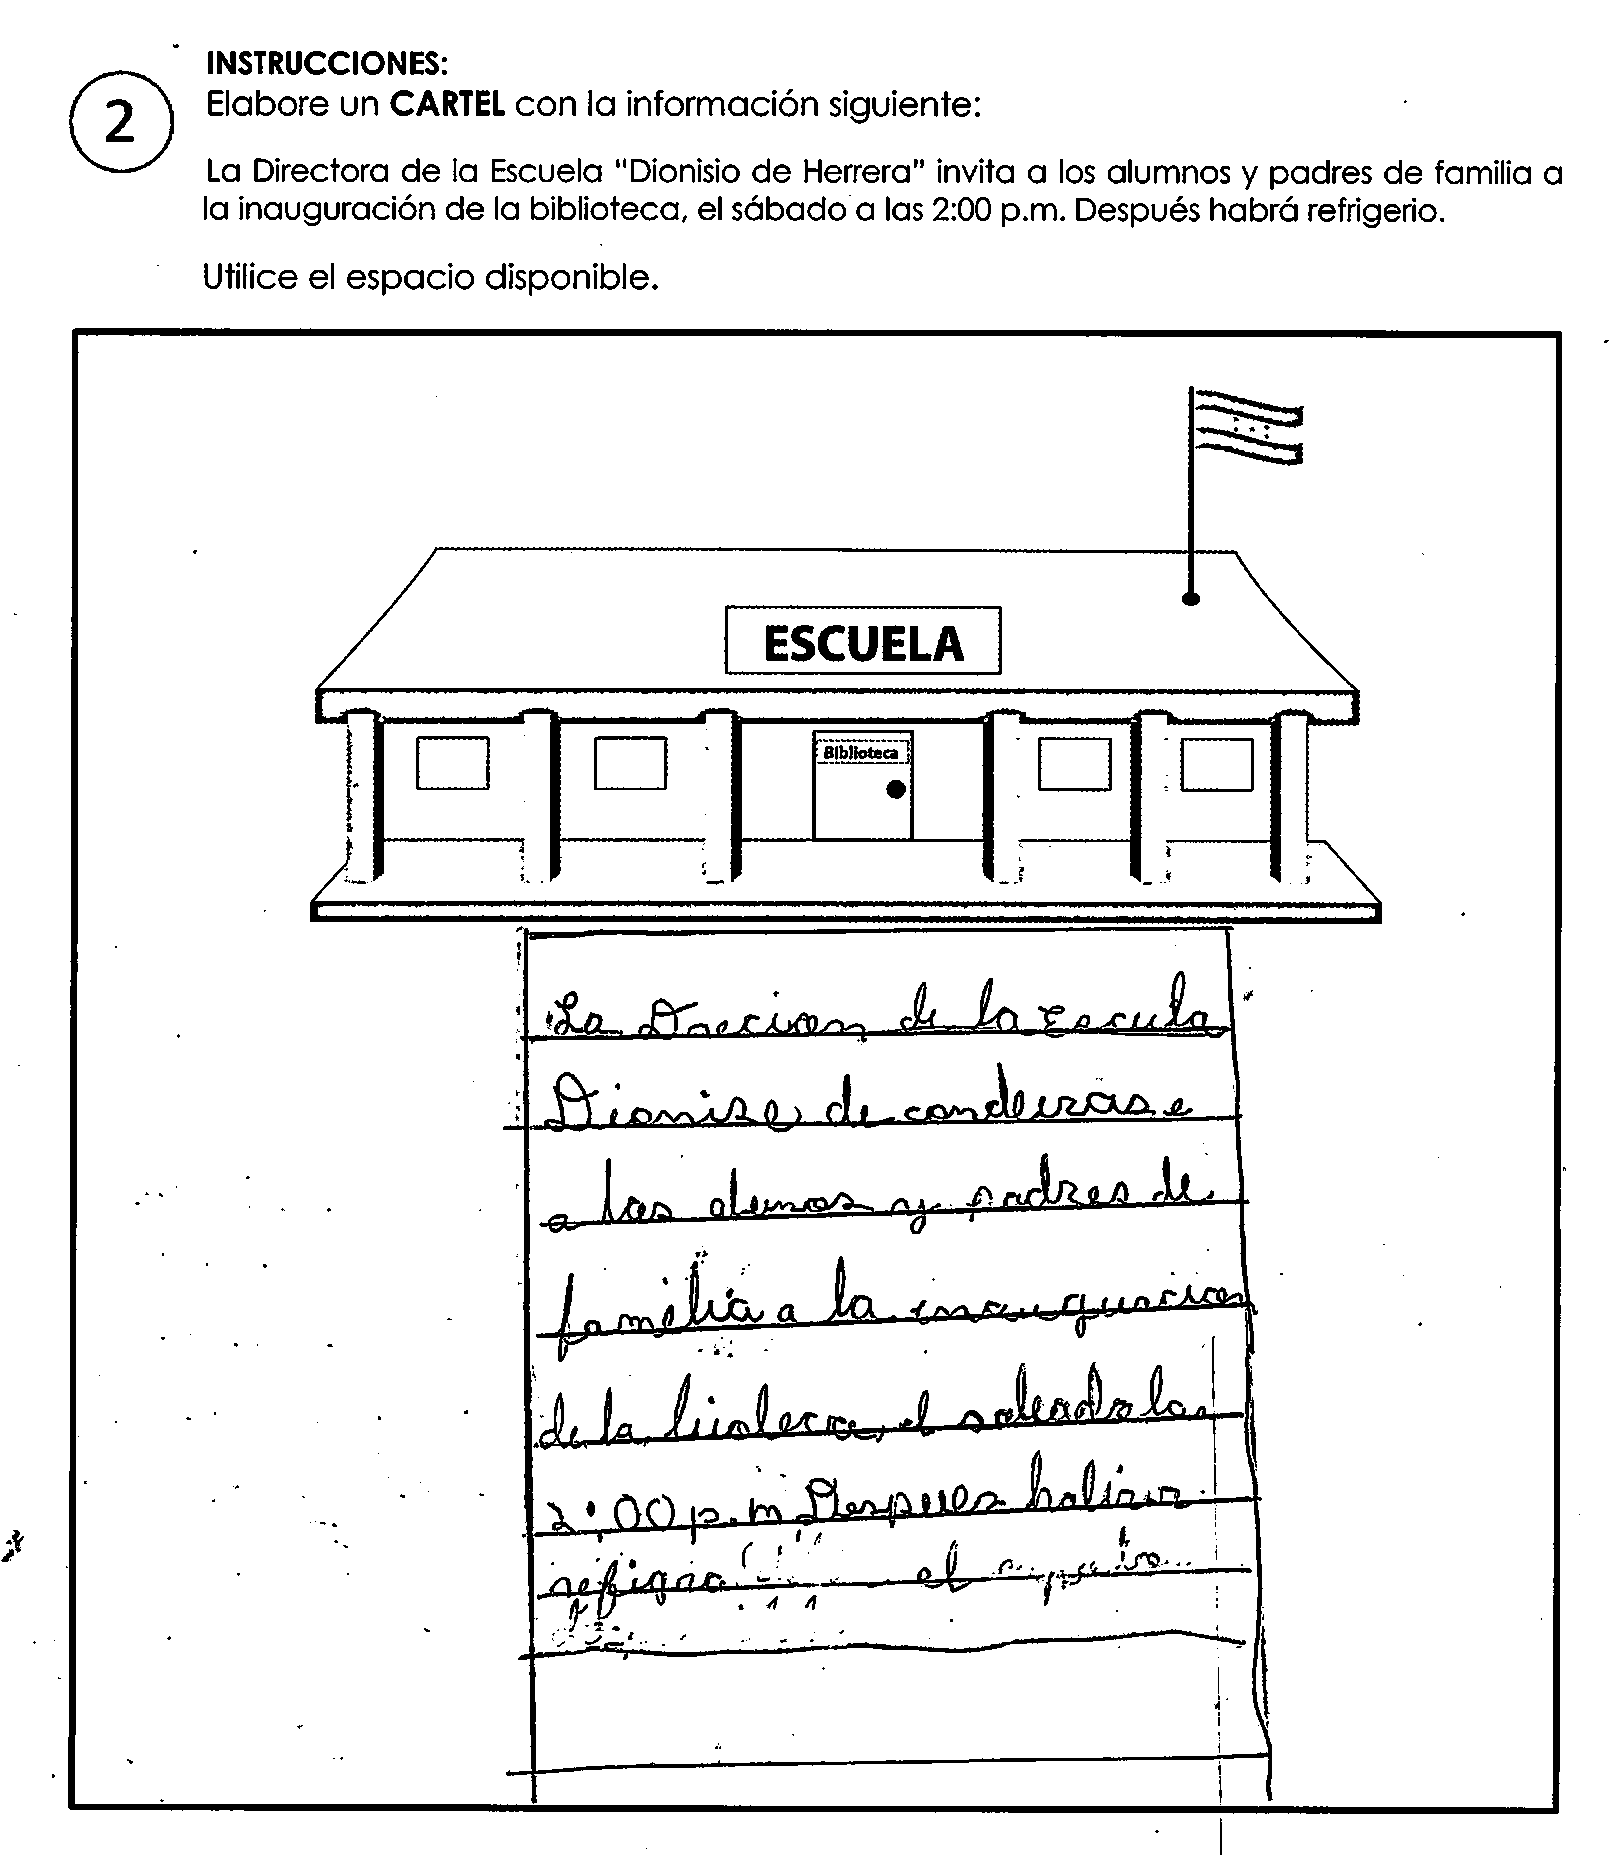 INSTRUCCIONES:
2
Elabore un CARTEL con la información siguiente:
La Directora de la Escuela "Dionisio de Herrera" invita a los alumnos y padres de familia a
la inauguración de la biblioteca, el sábado a las 2:00 p.m. Después habrá refrigerio.
Utilice el espacio disponible.
ESCUELA
Biblioteca
La Drecion de la Escula
Dionise de
a las alumos y padres de
familia a la inauguracion
de la el sabado las
2:00 p.m Despues
refigrio el